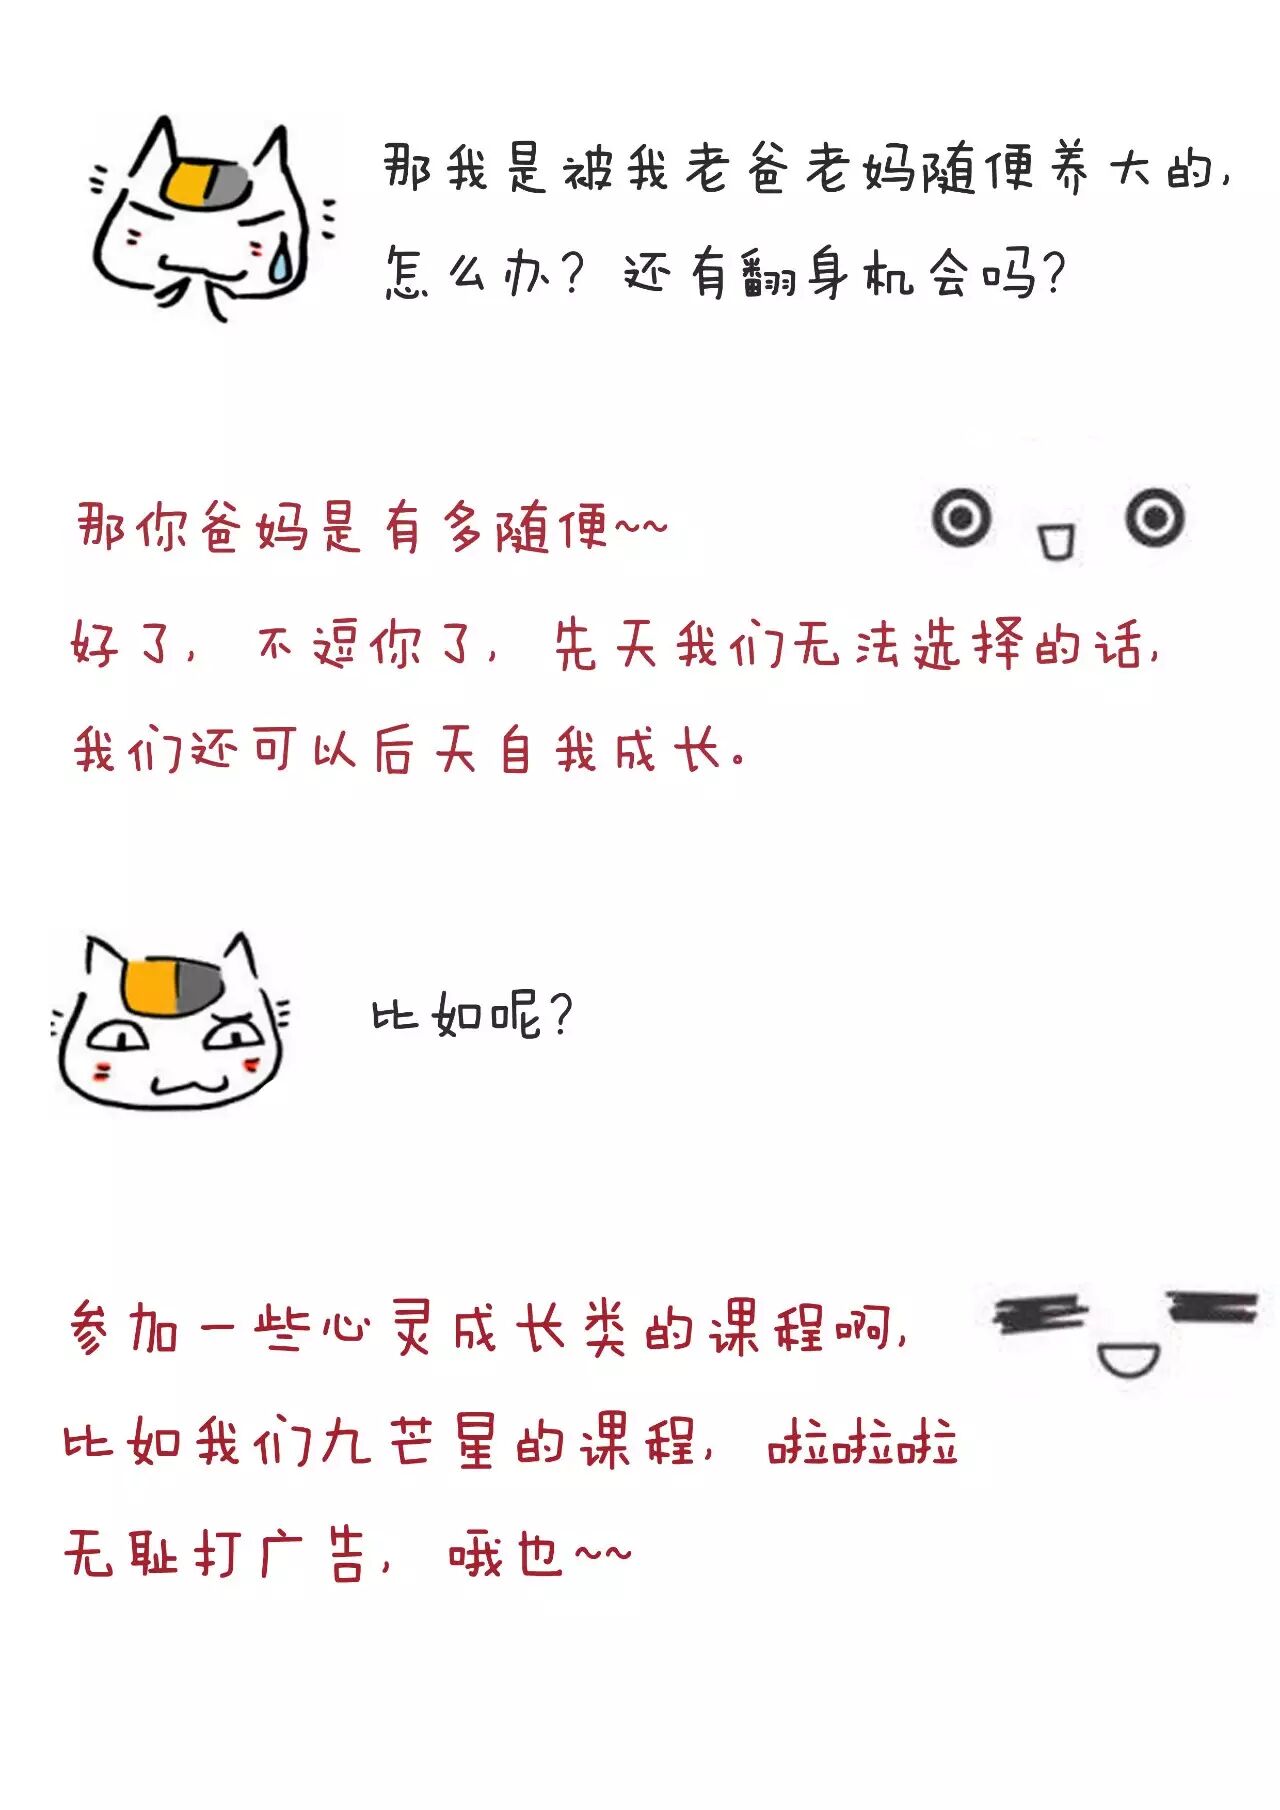 那我是被我老爸老妈随便养大的,
怎么办? 还有翻身机会吗?
那你爸妈是有多随便~~
好了, 不逗你了, 先天我们无法选择的话,
我们还可以后天自我成长。
比如呢?
参加一些心灵成长类的课程啊,
比如我们九芒星的课程, 啦啦啦
无耻打广告, 哦也~~